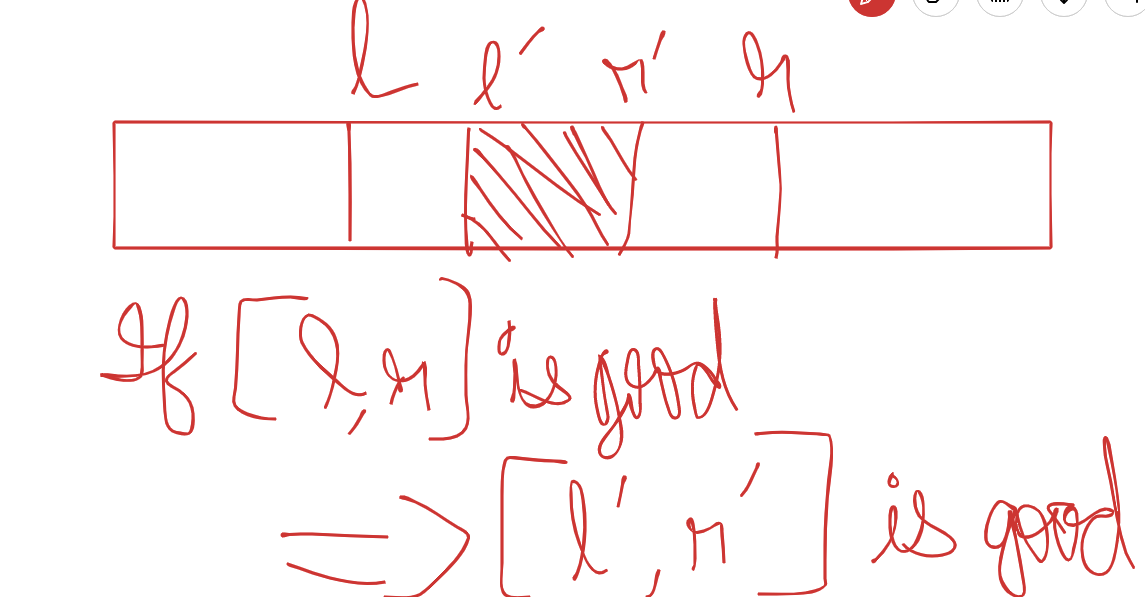 l l' r' r
If [l, r] is good
⇒ [l', r'] is good